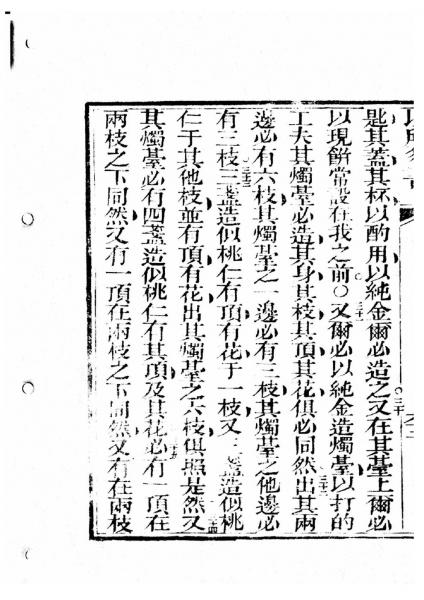 匙其蓋其杯以酌用以純金爾必造之又在其臺上爾必
以現餅常設在我之前○又爾必以純金造燭臺以打的
工夫其燭臺必造其身其枝其頂其花俱必同然出其兩
邊必有六枝其燭臺之一邊必有三枝其燭臺之他邊必
有三枝三盞造似桃仁有頂有花于一枝又三盞造似桃
仁于其他枝並有頂有花出其燭臺之六枝俱照是然又
其燭臺必有四盞造似桃仁有其頂及其花必有一頂在
兩枝之下同然又有一頂在兩枝之下同然又有在兩枝